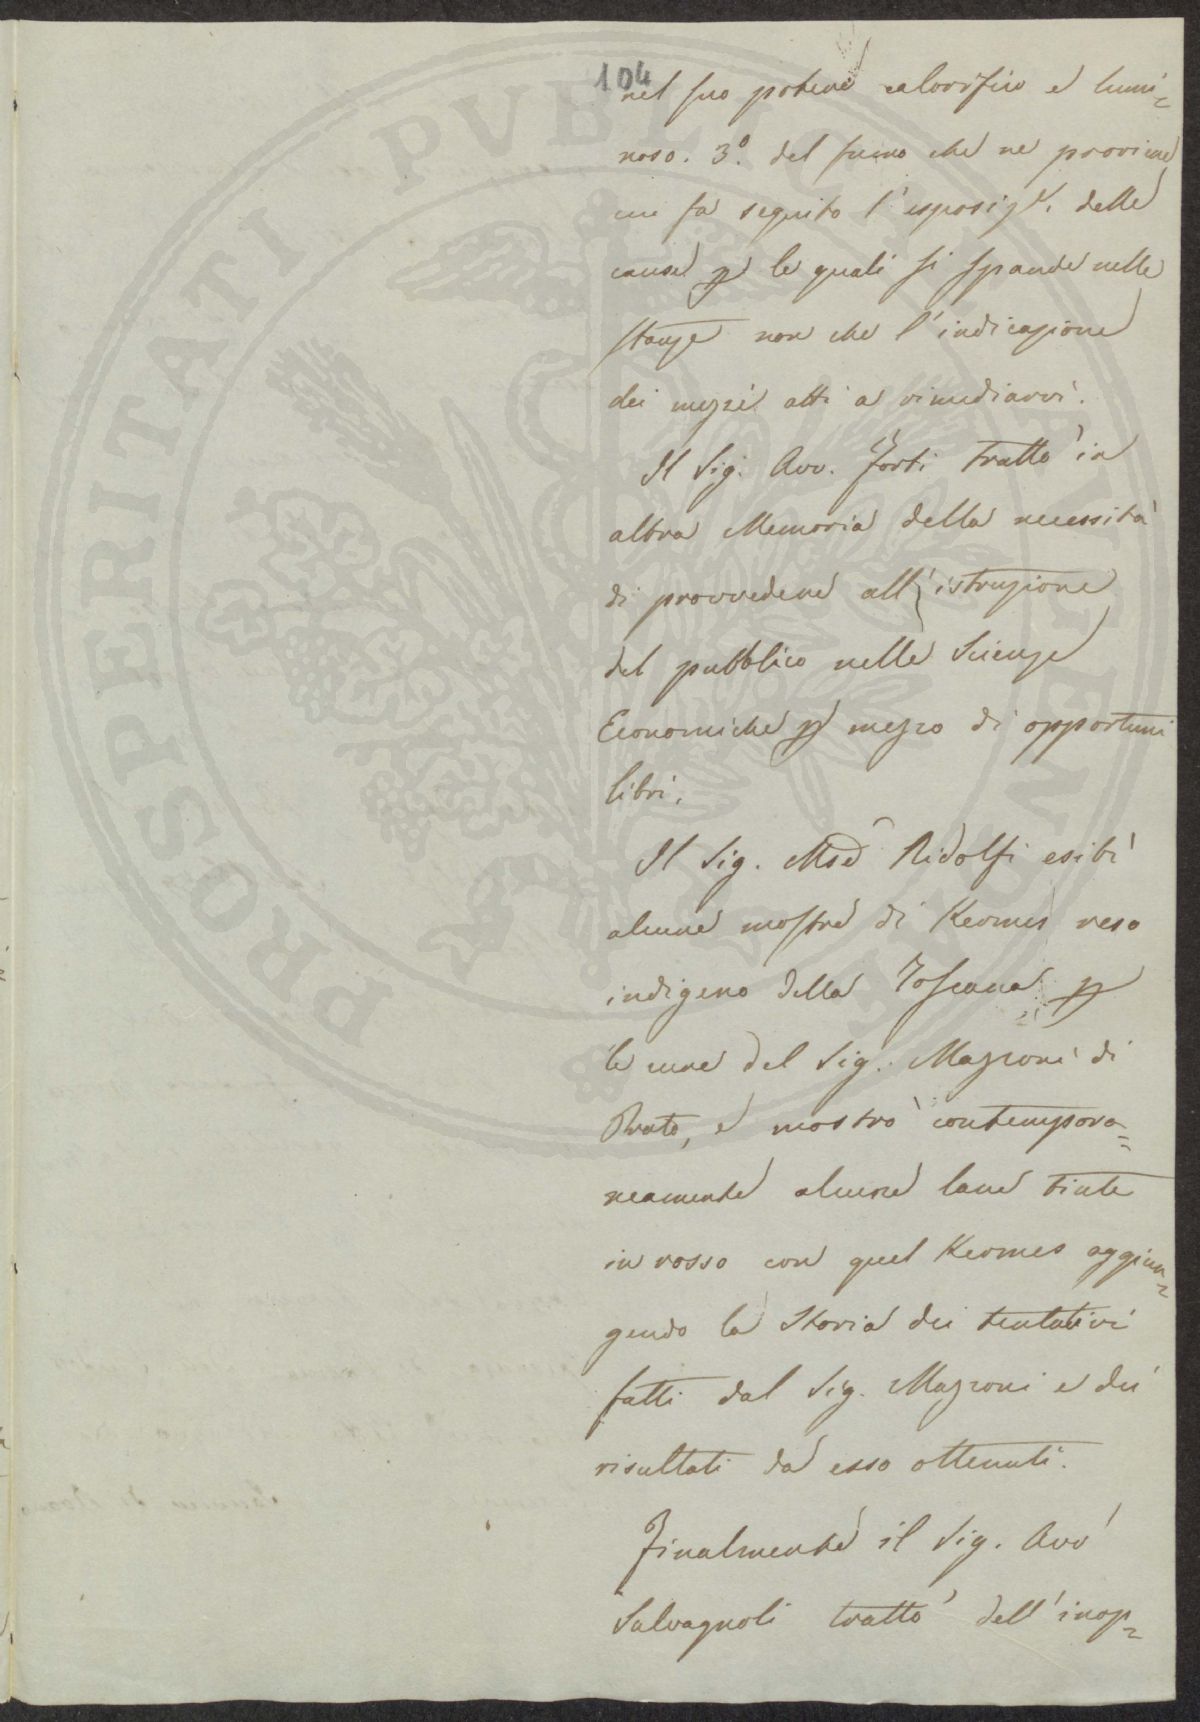 104
nel suo potere calorifico e lumi=
noso. 3.º del fumo che ne proviene
cui fa seguito l'esposiz.e delle
cause p le quali si spande nelle
stanze non che l'indicazione
dei mezzi atti a rimediarvi.
Il Sig. Avv. Forti trattò in
altra Memoria della necessità
di provvedere all'istruzione
del pubblico nelle Scienze
Economiche p mezzo di opportuni
libri.
Il Sig. Mse Ridolfi esibì
alcune mostre di Kermes reso
indigeno della Toscana p
le cure del Sig. Mazzoni di
Prato, e mostrò contempora=
neamente alcune lane tinte
in rosso con quel Kermes aggiun=
gendo la Storia dei tentativi
fatti dal Sig. Mazzoni e dei
risultati da esso ottenuti.
Finalmente il Sig. Avv
Salvagnoli trattò dell'inop=
PROSPERITATI PUBLICAE AUGENDAE